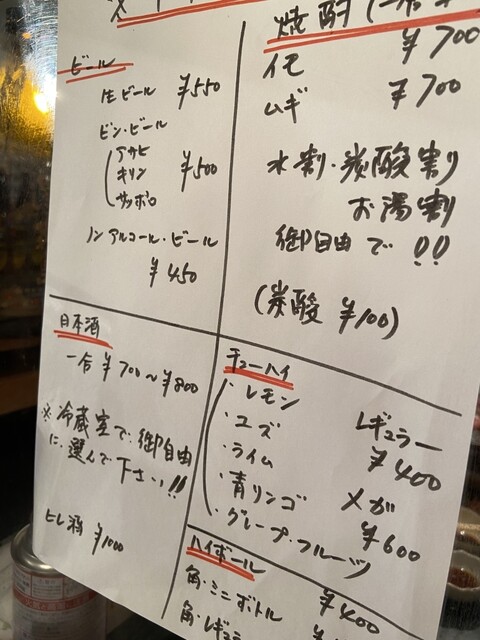 ビール
生ビール ¥550
ビン・ビール
アサヒ
キリン ¥500
サッポロ
ノンアルコール・ビール
¥450
焼酎(一合
イモ ¥700
ムギ ¥700
水割・炭酸割り
お湯割
御自由で!!
(炭酸 ¥100)
日本酒
一合 ¥700~¥800
※冷蔵室で御自由
に選んで下さい!!
ヒレ酒 ¥1000
チューハイ
・レモン
・ユズ レギュラー
・ライム ¥400
・青リンゴ メガ
・グレープ・フルーツ ¥600
ハイボール
角・ミニボトル ¥400
角・レギュ